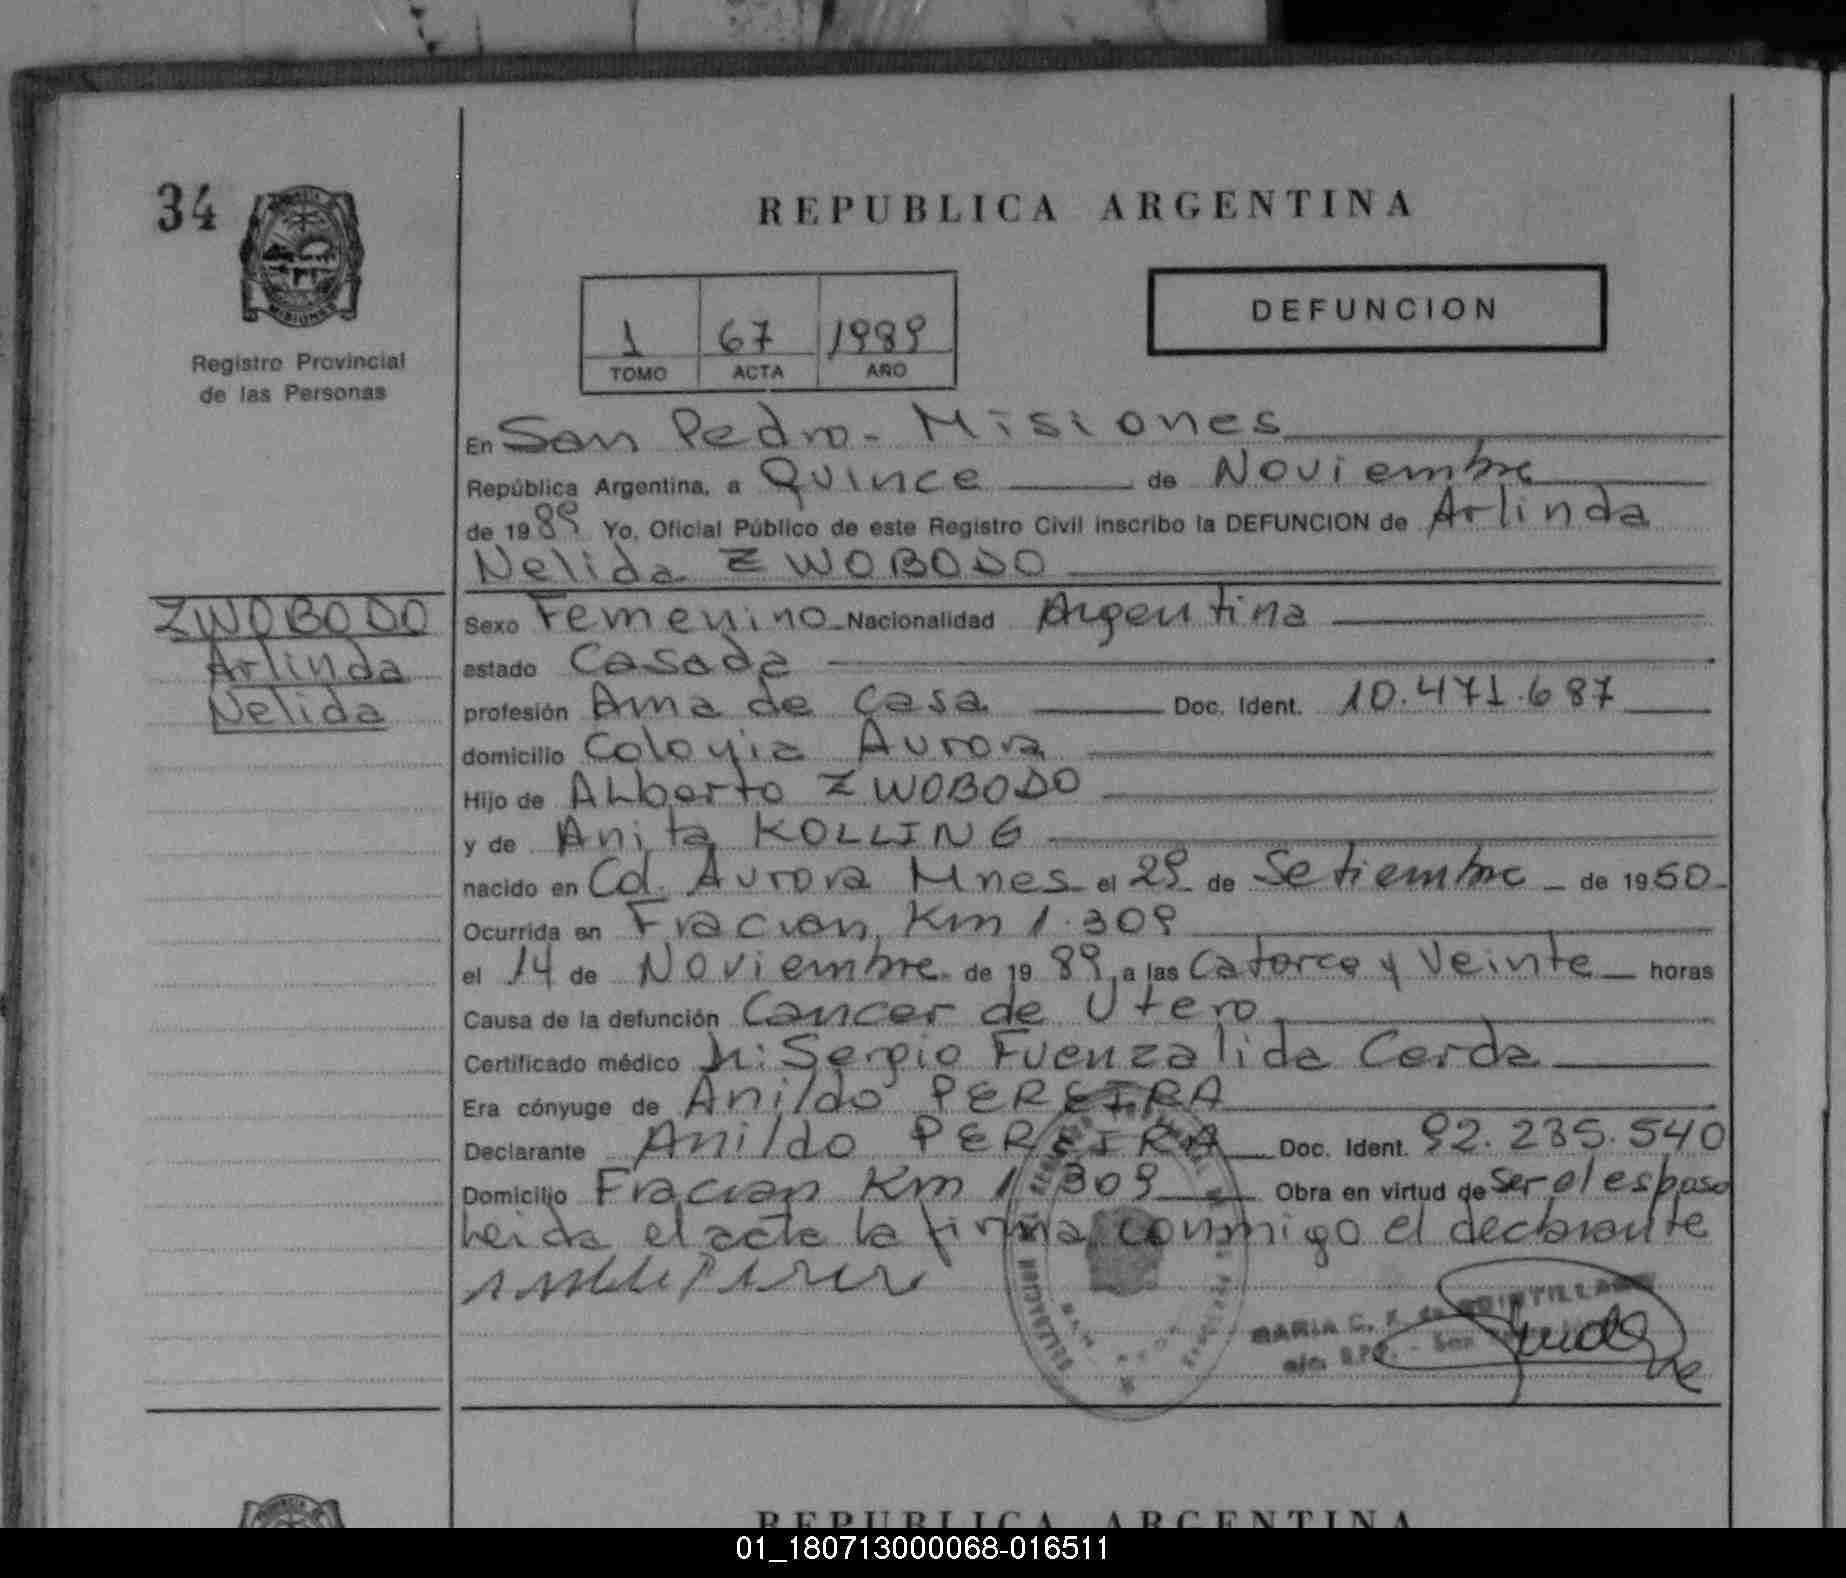 34
REPUBLICA ARGENTINA
MISIONES
Registro Provincial
de las Personas
1 67 1989
TOMO ACTA AÑO
DEFUNCION
En San Pedro - Misiones
República Argentina, a Quince de Noviembre
de 1989 Yo, Oficial Público de este Registro Civil inscribo la DEFUNCION de Arlinda
Nelida ZWOBODO
ZWOBODO
Arlinda
Nelida
Sexo Femenino Nacionalidad Argentina
estado Casada
profesión Ama de Casa Doc. Ident. 10.471.687
domicilio Colonia Aurora
Hijo de ALberto ZWOBODO
y de Anita KOLLING
nacido en Col. Aurora Mnes el 29 de Setiembre de 1950
Ocurrida en Fracran, Km 1.309
el 14 de Noviembre de 1989, a las Catorce y Veinte horas
Causa de la defunción Cancer de Utero
Certificado médico Dr: Sergio Fuenzalida Cerda
Era cónyuge de Anildo PEREIRA
Declarante Anildo PEREIRA Doc. Ident. 92.235.540
Domicilio Fracran Km 1.309 Obra en virtud de ser el esposo
Leida el acta la firma conmigo el declarante
MARIA C. K. de QUINTILLAN
REPUBLICA ARGENTINA
01_180713000068-016511